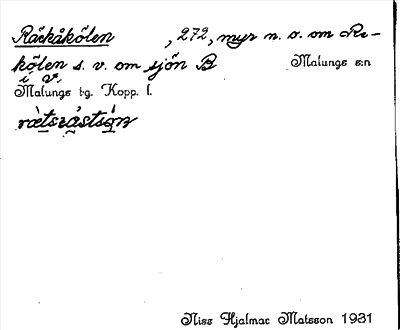 Räckåkölen , 272, myr n. v. om Re-
kölen s. v. om sjön B Malungs s:n
i V.
Malungs tg. Kopp. l.
Niss Hjalmar Matsson 1931